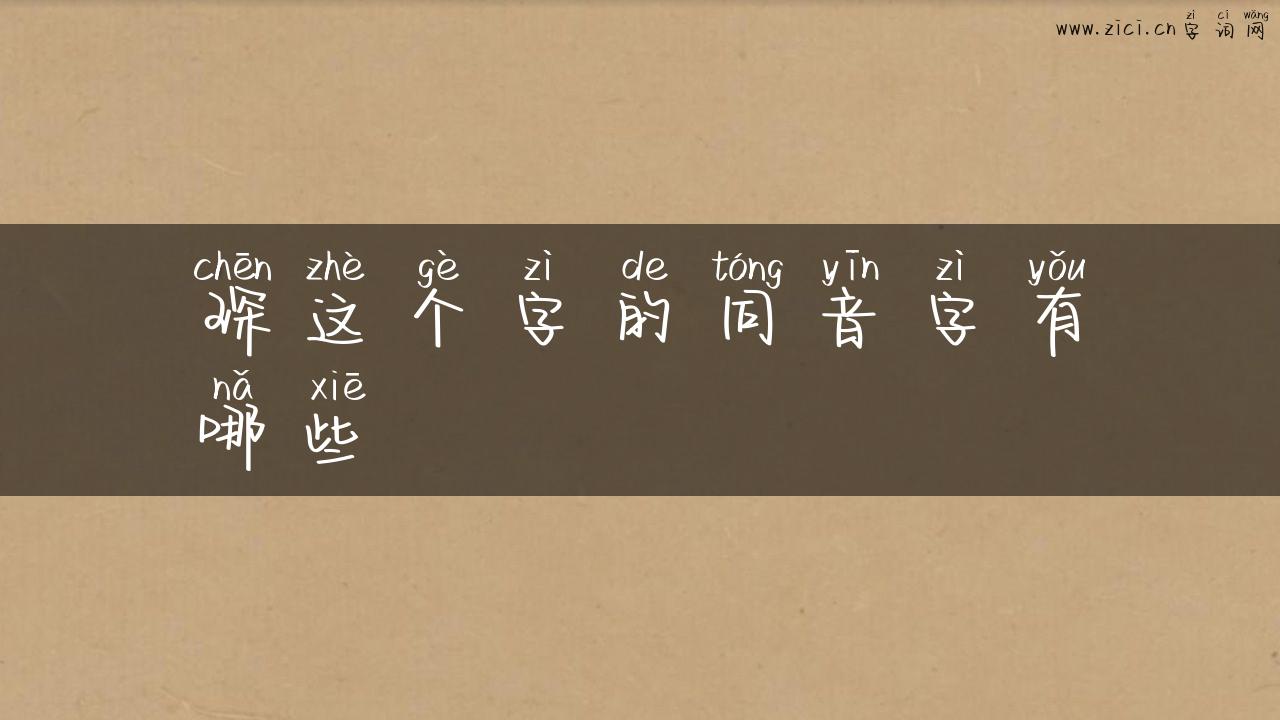 zì cí wǎng
www.zici.cn 字 词 网
chēn zhè gè zì de tóng yīn zì yǒu
琛 这 个 字 的 同 音 字 有
nǎ xiē
哪 些